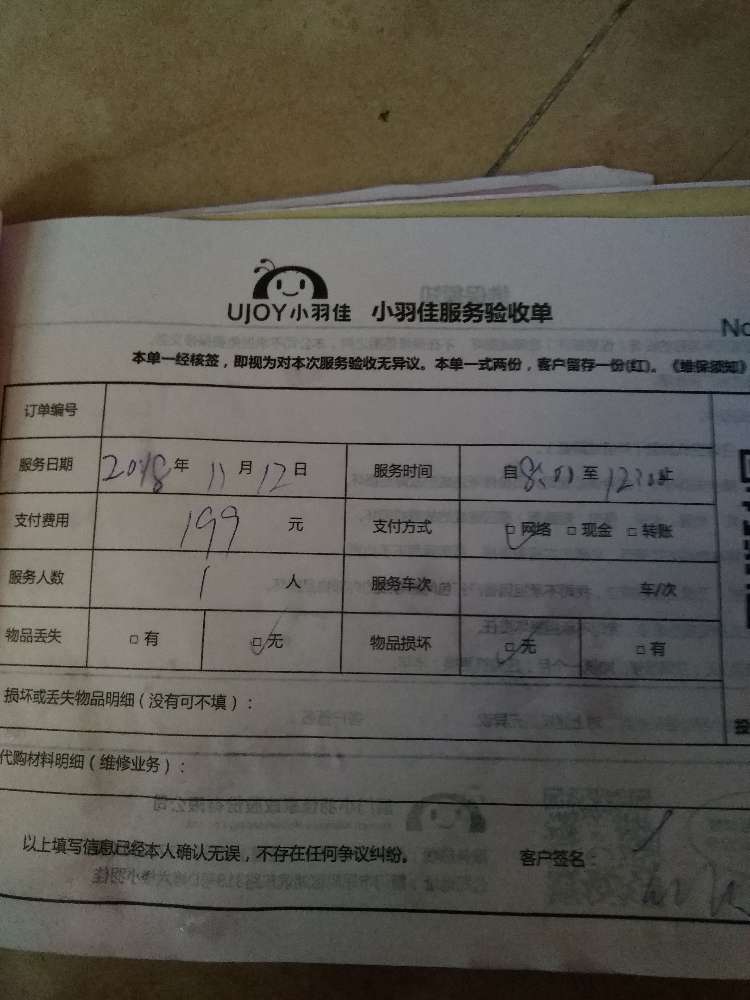 UJOY小羽佳 小羽佳服务验收单
No
本单一经核签，即视为对本次服务验收无异议。本单一式两份，客户留存一份(红)。《维保须知》
订单编号
服务日期 2018年 11月12日 服务时间 自8:00至12:30止
支付费用 199 元 支付方式 □网络 □现金 □转账
服务人数 1 人 服务车次 车/次
物品丢失 □有 □无 物品损坏 □无 □有
损坏或丢失物品明细（没有可不填）：
代购材料明细（维修业务）：
以上填写信息已经本人确认无误，不存在任何争议纠纷。 客户签名：